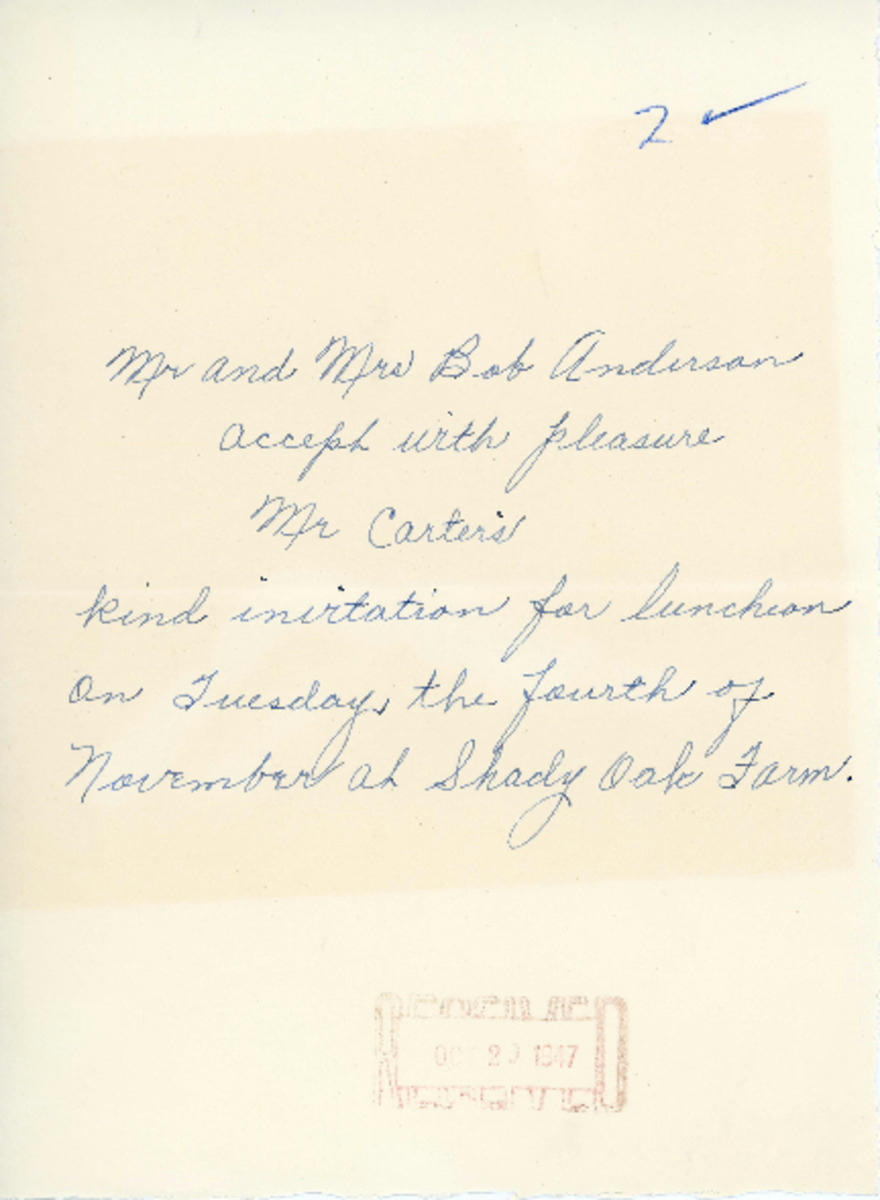 2 ✓
Mr and Mrs Bob Anderson
accept with pleasure
Mr Carter's
kind invitation for luncheon
on Tuesday, the fourth of
November at Shady Oak Farm.
OCT 2 1947